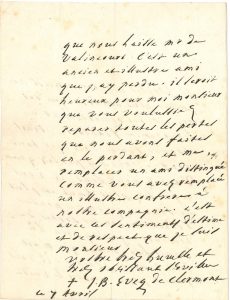 que nous laisse mr de
Valincourt. C'est un
ancien et illustre ami
que j'ay perdu. il seroit
heureux pour moi monsieur
que vous voulussiez
reparer toutes les pertes
que nous avons faites
en le perdant, et me
remplacer un ami distingué
comme vous avez remplacé
un illustre confrere a
nostre compagnie. c'est
avec ces sentiments d'estime
et de respect que je suis
monsieur,
Vostre tres humble et
tres obeissant serviteur
† J.B. Eveq de Clermont
ce 7 Avril